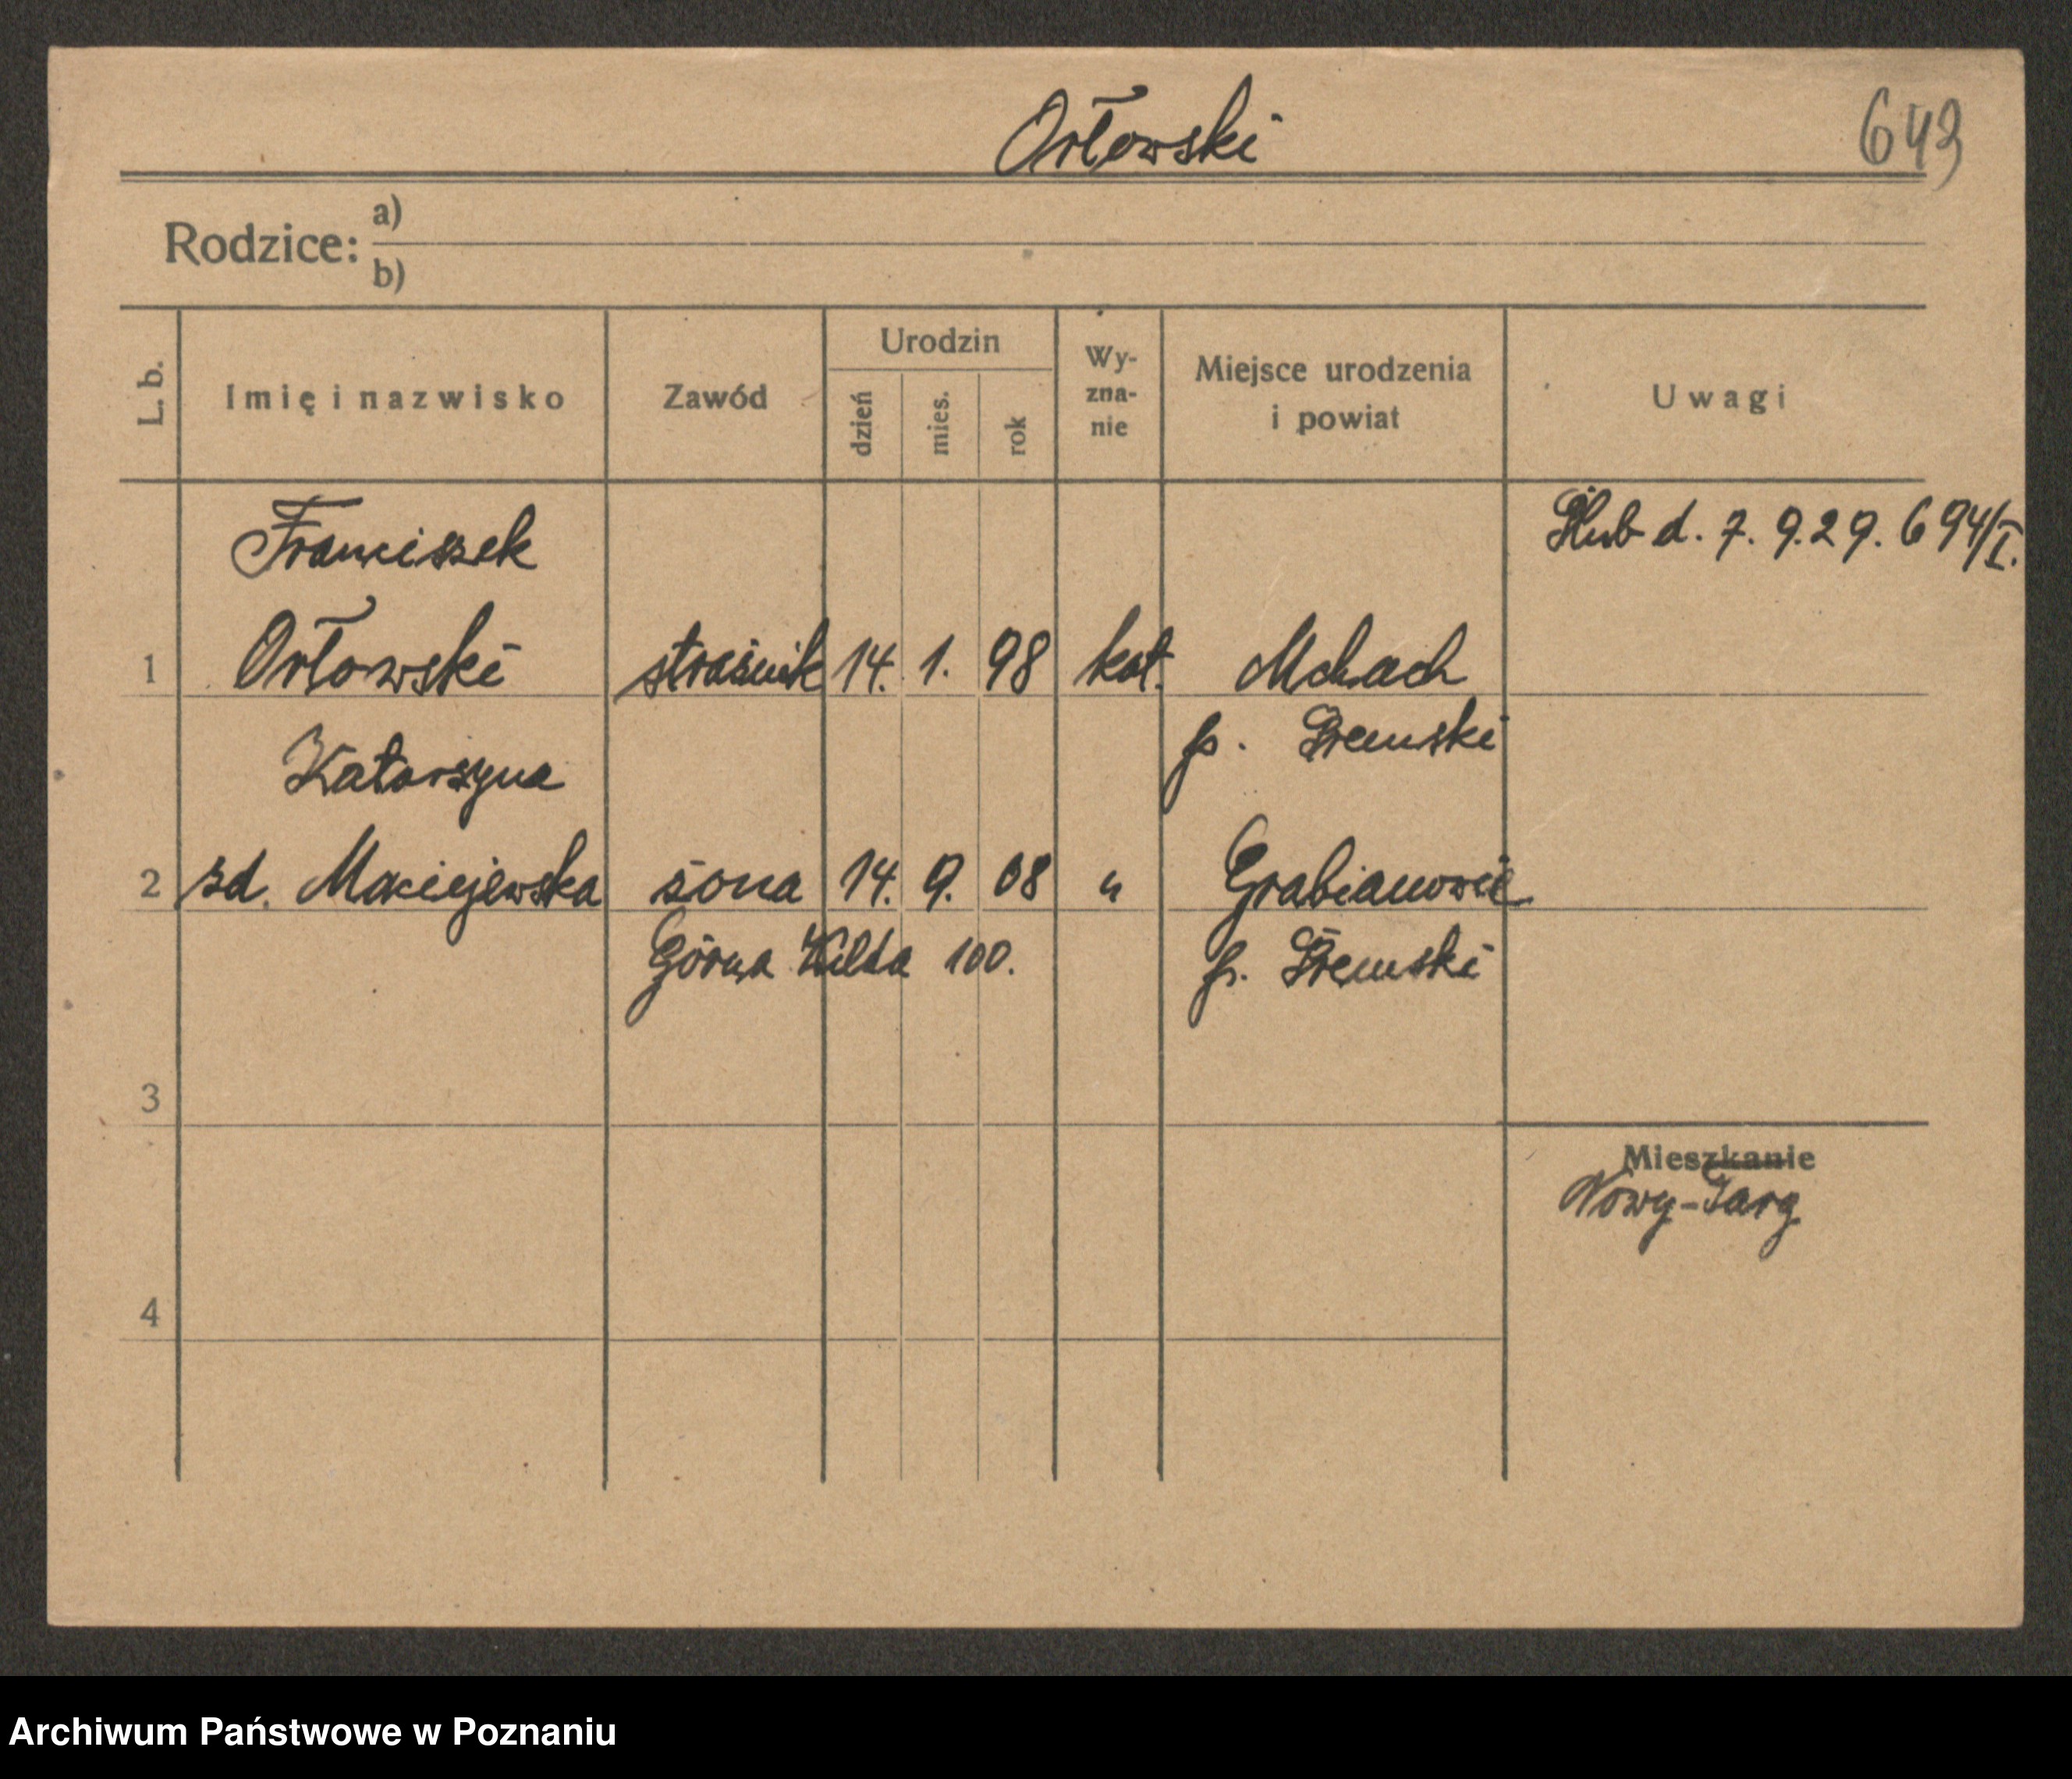 Orłowski 643
Rodzice: a)
b)
L. b. Imię i nazwisko Zawód Urodzin dzień mies. rok Wy-zna-nie Miejsce urodzenia i powiat Uwagi
Franciszek Ślub d. 7. 9. 29. 694/I.
1 Orłowski strażnik 14. 1. 98 kat. Mchach
p. Śremski
Katarzyna
2 zd. Maciejewska żona 14. 9. 08 " Grabianowie
Górna Wilda 100. p. Śremski
3
Mieszkanie
Nowy-Targ
4
Archiwum Państwowe w Poznaniu